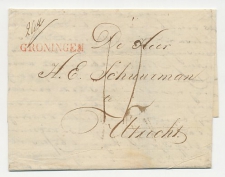 GRONINGEN
De Heer
A. E. Schuurman
Utrecht